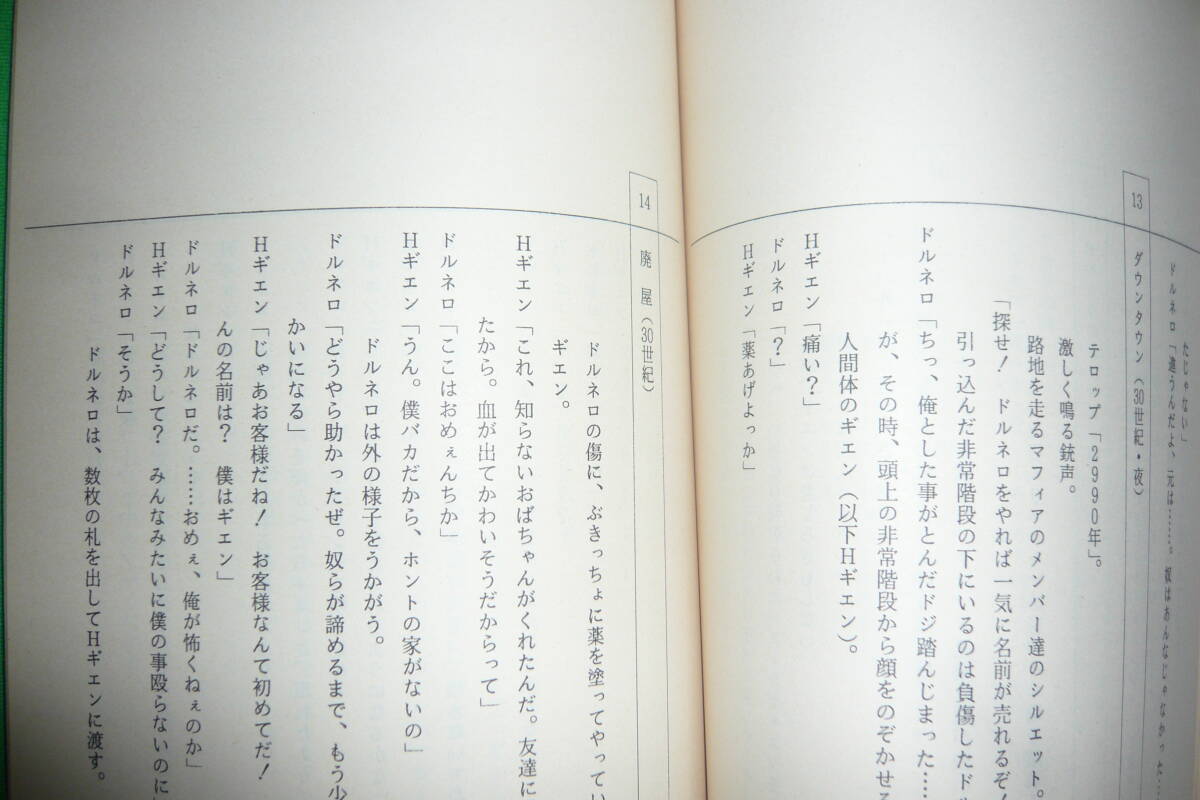 たじゃない」
ドルネロ「違うんだよ、元は……。奴はあんなじゃなかった…
13 ダウンタウン（30世紀・夜）
テロップ「2990年」。
激しく鳴る銃声。
路地を走るマフィアのメンバー達のシルエット。
「探せ！　ドルネロをやれば一気に名前が売れるぞ！
引っ込んだ非常階段の下にいるのは負傷したド
ドルネロ「ちっ、俺とした事がとんだドジ踏んじまった……
が、その時、頭上の非常階段から顔をのぞかせる
人間体のギエン（以下Hギエン）。
Hギエン「痛い？」
ドルネロ「？」
Hギエン「薬あげよっか」
14 廃　屋（30世紀）
ドルネロの傷に、ぶきっちょに薬を塗ってやってい
ギエン。
Hギエン「これ、知らないおばちゃんがくれたんだ。友達に
たから。血が出てかわいそうだからって」
ドルネロ「ここはおめぇんちか」
Hギエン「うん。僕バカだから、ホントの家がないの」
ドルネロは外の様子をうかがう。
ドルネロ「どうやら助かったぜ。奴らが諦めるまで、もう少
かいになる」
Hギエン「じゃあお客様だね！　お客様なんて初めてだ！
んの名前は？　僕はギエン」
ドルネロ「ドルネロだ。……おめぇ、俺が怖くねぇのか」
Hギエン「どうして？　みんなみたいに僕の事殴らないのに」
ドルネロ「そうか」
ドルネロは、数枚の札を出してHギエンに渡す。